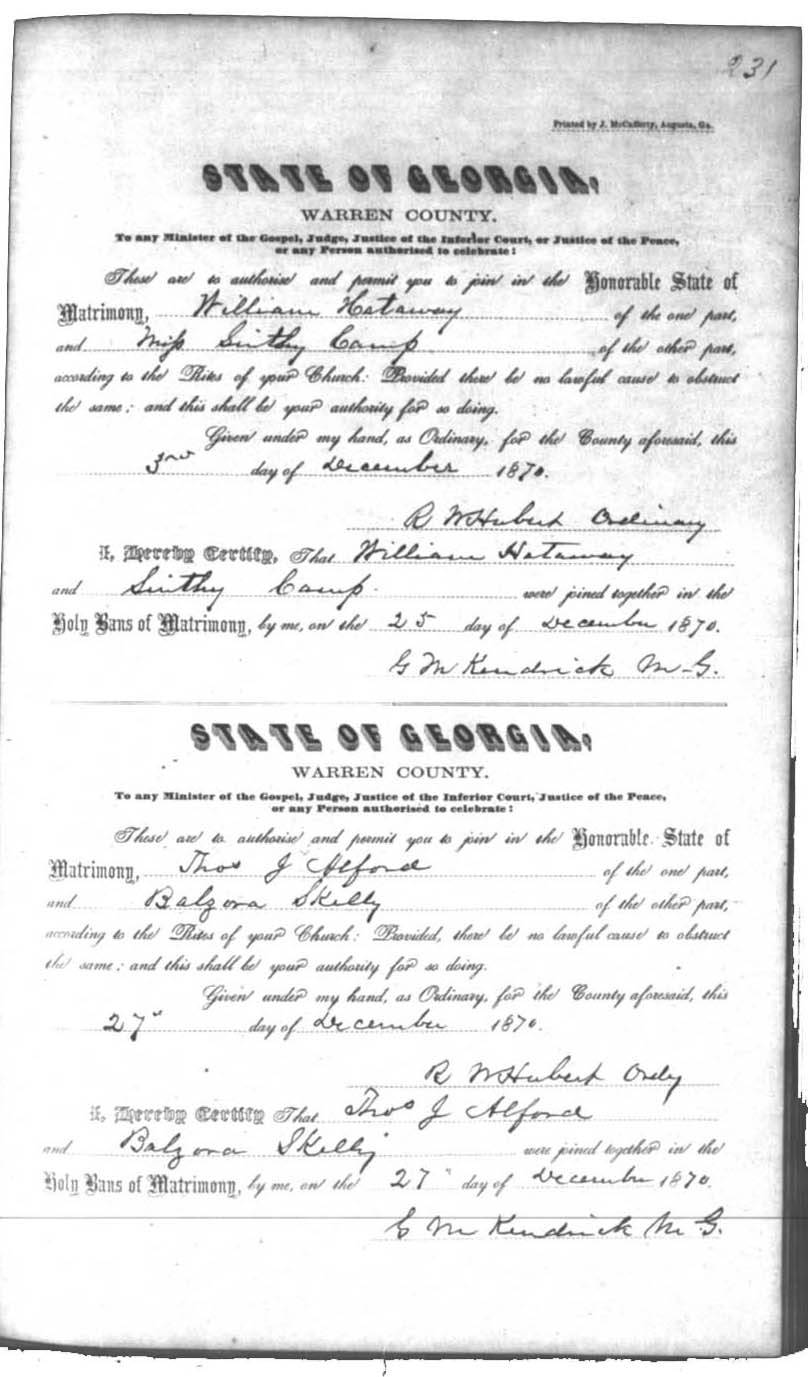 231
Printed by J. McCafferty, Augusta, Ga.
STATE OF GEORGIA,
WARREN COUNTY.
To any Minister of the Gospel, Judge, Justice of the Inferior Court, or Justice of the Peace,
or any Person authorised to celebrate:
These are to authorise and permit you to join in the Honorable State of
Matrimony, William Hataway of the one part,
and Miss Sinthy Camp of the other part,
according to the Rites of your Church: Provided there be no lawful cause to obstruct
the same; and this shall be your authority for so doing.
Given under my hand, as Ordinary, for the County aforesaid, this
3rd day of December 1870.
R W Hubert Ordinary
I, Hereby Certify, That William Hataway
and Sinthy Camp were joined together in the
Holy Bans of Matrimony, by me, on the 25 day of December 1870.
G M Kendrick M-G.
STATE OF GEORGIA,
WARREN COUNTY.
To any Minister of the Gospel, Judge, Justice of the Inferior Court, Justice of the Peace,
or any Person authorised to celebrate:
These are to authorise and permit you to join in the Honorable State of
Matrimony, Thos J Alford of the one part,
and Balzora Skelly of the other part,
according to the Rites of your Church: Provided, there be no lawful cause to obstruct
the same; and this shall be your authority for so doing.
Given under my hand, as Ordinary, for the County aforesaid, this
27" day of December 1870.
R W Hubert Ordy
I, Hereby Certify That Thos J Alford
and Balzora Skelly were joined together in the
Holy Bans of Matrimony, by me, on the 27" day of December 1870.
C M Kendrick M G.